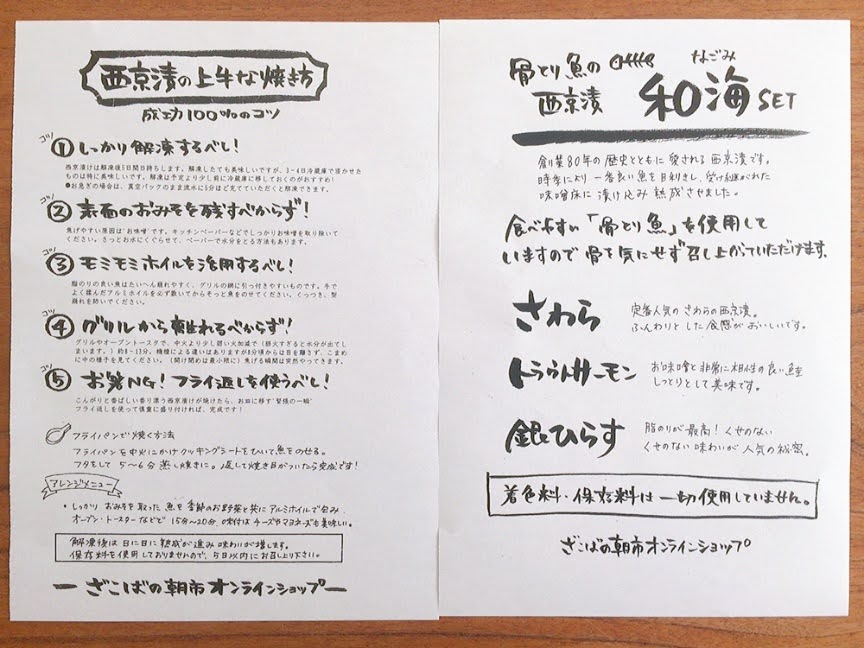 西京漬の上手な焼き方
成功100%のコツ
コツ① しっかり解凍するべし!
西京漬けは解凍後5日間日持ちします。解凍したても美味しいですが、3~4日冷蔵庫で寝かせた
ものは特に美味しいです。解凍は予定より少し前に冷蔵庫に移しておくのがおすすめ!
●お急ぎの場合は、真空パックのまま流水に5分ほど充てていただくと解凍できます。
コツ② 表面のおみそを残すべからず!
焦げやすい原因は"お味噌"です。キッチンペーパーなどでしっかりお味噌を取り除いて
ください。さっとお水にくぐらせて、ペーパーで水分をとる方法もあります。
コツ③ モミモミホイルを活用するべし!
脂のりの良い魚はたいへん崩れやすく、グリルの網に引っ付きやすいものです。手で
よく揉んだアルミホイルを必ず敷いてからそっと魚をのせてください。くっつき、型
崩れを防いでください。
コツ④ グリルから離れるべからず!
グリルやオーブントースタで、中火より少し弱い火加減で(弱火すぎると水分が出てし
まいます。)約8~13分。機種による違いはありますが8分頃からは目を離さず、こまめ
に中の様子を見てください。(開け閉めは最小限に)焦げる瞬間は突然やってきます。
コツ⑤ お箸NG!フライ返しを使うべし!
こんがりと香ばしい香り漂う西京漬けが焼けたら、お皿に移す"緊張の一瞬"
フライ返しを使って慎重に盛り付ければ、完成です!
フライパンで焼く方法
フライパンを中火にかけクッキングシートをひいて、魚をのせる。
フタをして5~6分蒸し焼きに。返して焼き目がついたら完成です!
アレンジメニュー
・しっかりおみそを取った魚を季節のお野菜と共にアルミホイルで包み
オーブン・トースターなどで15分~20分。味付はチーズやマヨネーズも美味しい。
解凍後は日に日に熟成が進み味わいが増します。
保存料を使用しておりませんので、5日以内にお召し上り下さい。
ー ざこばの朝市オンラインショップ ー
骨とり魚の
西京漬
なごみ
和海SET
創業80年の歴史とともに愛される西京漬です。
時季により一番良い魚を目利きし、受け継がれた
味噌床に漬け込み熟成させました。
食べやすい「骨とり魚」を使用して
いますので骨を気にせず召し上がっていただけます。
さわら
定番人気のさわらの西京漬。
ふんわりとした食感がおいしいです。
トラウトサーモン
お味噌と非常に相性の良い鮭
しっとりとして美味です。
銀ひらす
脂のりが最高!くせのない
くせのない味わいが人気の秘密。
着色料・保存料は一切使用していません。
ざこばの朝市オンラインショップ